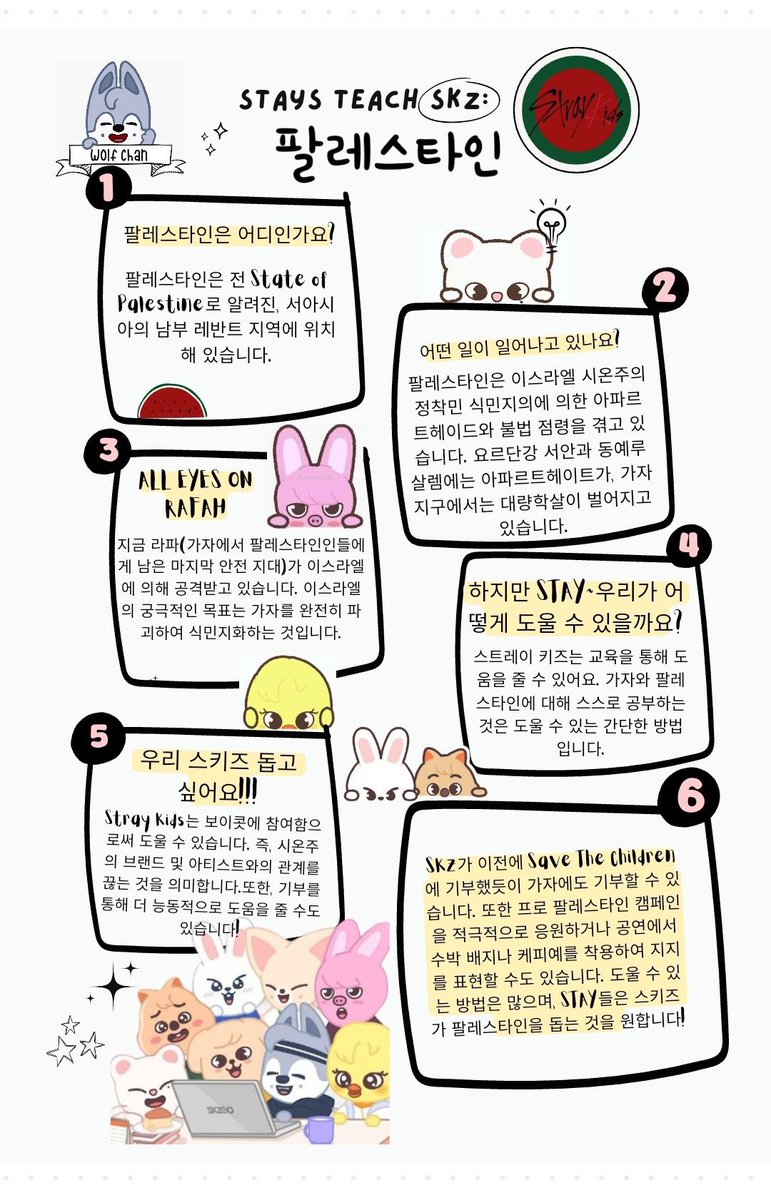 STAYS TEACH SKZ:
팔레스타인
Stray Kids
Wolf Chan
1
팔레스타인은 어디인가요?
팔레스타인은 전 State of
Palestine로 알려진, 서아시
아의 남부 레반트 지역에 위치
해 있습니다.
2
어떤 일이 일어나고 있나요?
팔레스타인은 이스라엘 시온주의
정착민 식민지의에 의한 아파르
트헤이드와 불법 점령을 겪고 있
습니다. 요르단강 서안과 동예루
살렘에는 아파르트헤이트가, 가자
지구에서는 대량학살이 벌어지고
있습니다.
3
ALL EYES ON
RAFAH
지금 라파(가자에서 팔레스타인인들에
게 남은 마지막 안전 지대)가 이스라엘
에 의해 공격받고 있습니다. 이스라엘
의 궁극적인 목표는 가자를 완전히 파
괴하여 식민지화하는 것입니다.
4
하지만 STAY~우리가 어
떻게 도울 수 있을까요?
스트레이 키즈는 교육을 통해 도
움을 줄 수 있어요. 가자와 팔레
스타인에 대해 스스로 공부하는
것은 도울 수 있는 간단한 방법
입니다.
5
우리 스키즈 돕고
싶어요!!!
Stray Kids는 보이콧에 참여함으
로써 도울 수 있습니다. 즉, 시온주
의 브랜드 및 아티스트와의 관계를
끊는 것을 의미합니다.또한, 기부를
통해 더 능동적으로 도움을 줄 수도
있습니다!
6
SKZ가 이전에 Save The Children
에 기부했듯이 가자에도 기부할 수 있
습니다. 또한 프로 팔레스타인 캠페인
을 적극적으로 응원하거나 공연에서
수박 배지나 케피예를 착용하여 지지
를 표현할 수도 있습니다. 도울 수 있
는 방법은 많으며, STAY들은 스키즈
가 팔레스타인을 돕는 것을 원합니다!
SKZOO